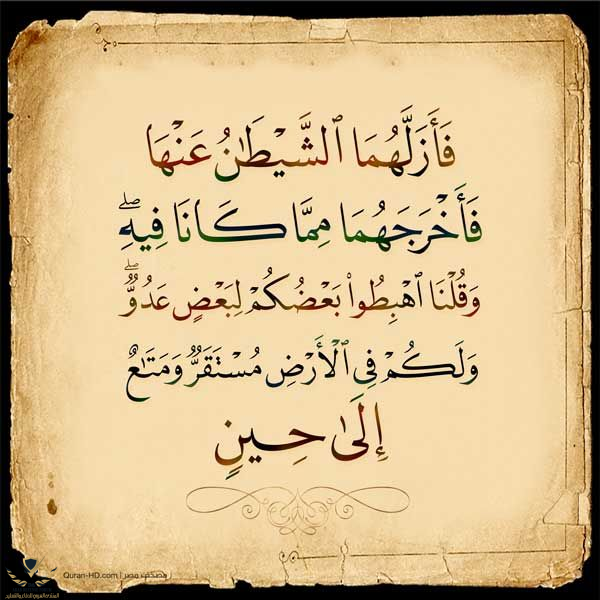 فَأَزَلَّهُمَا ٱلشَّيْطَٰنُ عَنْهَا
فَأَخْرَجَهُمَا مِمَّا كَانَا فِيهِۖ
وَقُلْنَا ٱهْبِطُوا۟ بَعْضُكُمْ لِبَعْضٍ عَدُوٌّۖ
وَلَكُمْ فِي ٱلْأَرْضِ مُسْتَقَرٌّ وَمَتَٰعٌ
إِلَىٰ حِينٍ
Quran-HD.com | مصحف مصر